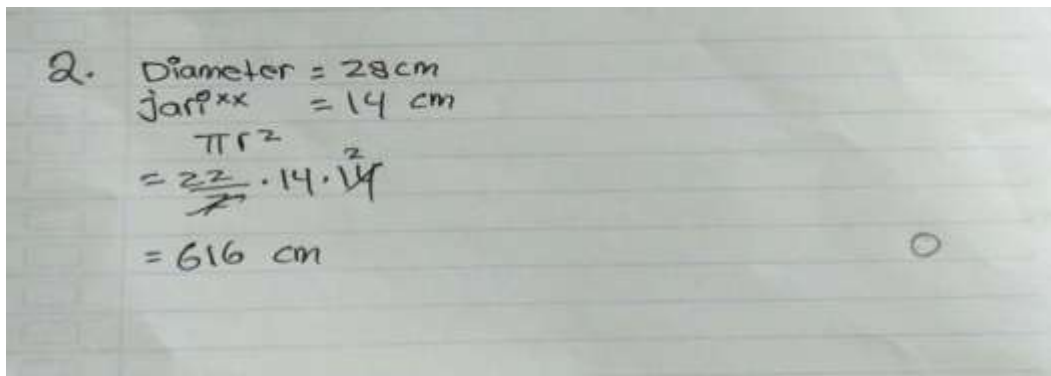 2. Diameter = 28 cm
jari xx = 14 cm
πr²
= 22/7 . 14 . 14 2
= 616 cm